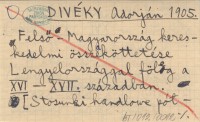 DIVÉKY Adorján 1905.
"Felső"-Magyarország keres-
kedelmi összeköttetése
Lengyelországgal főleg a
XVI - XVII. században.
[Stosunki handlowe pół-